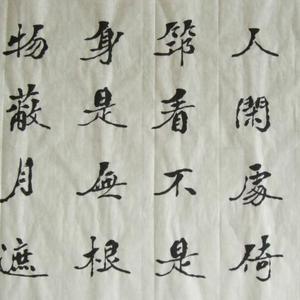 人閑處倚
筇看不是
身是無根
物蔽月遮